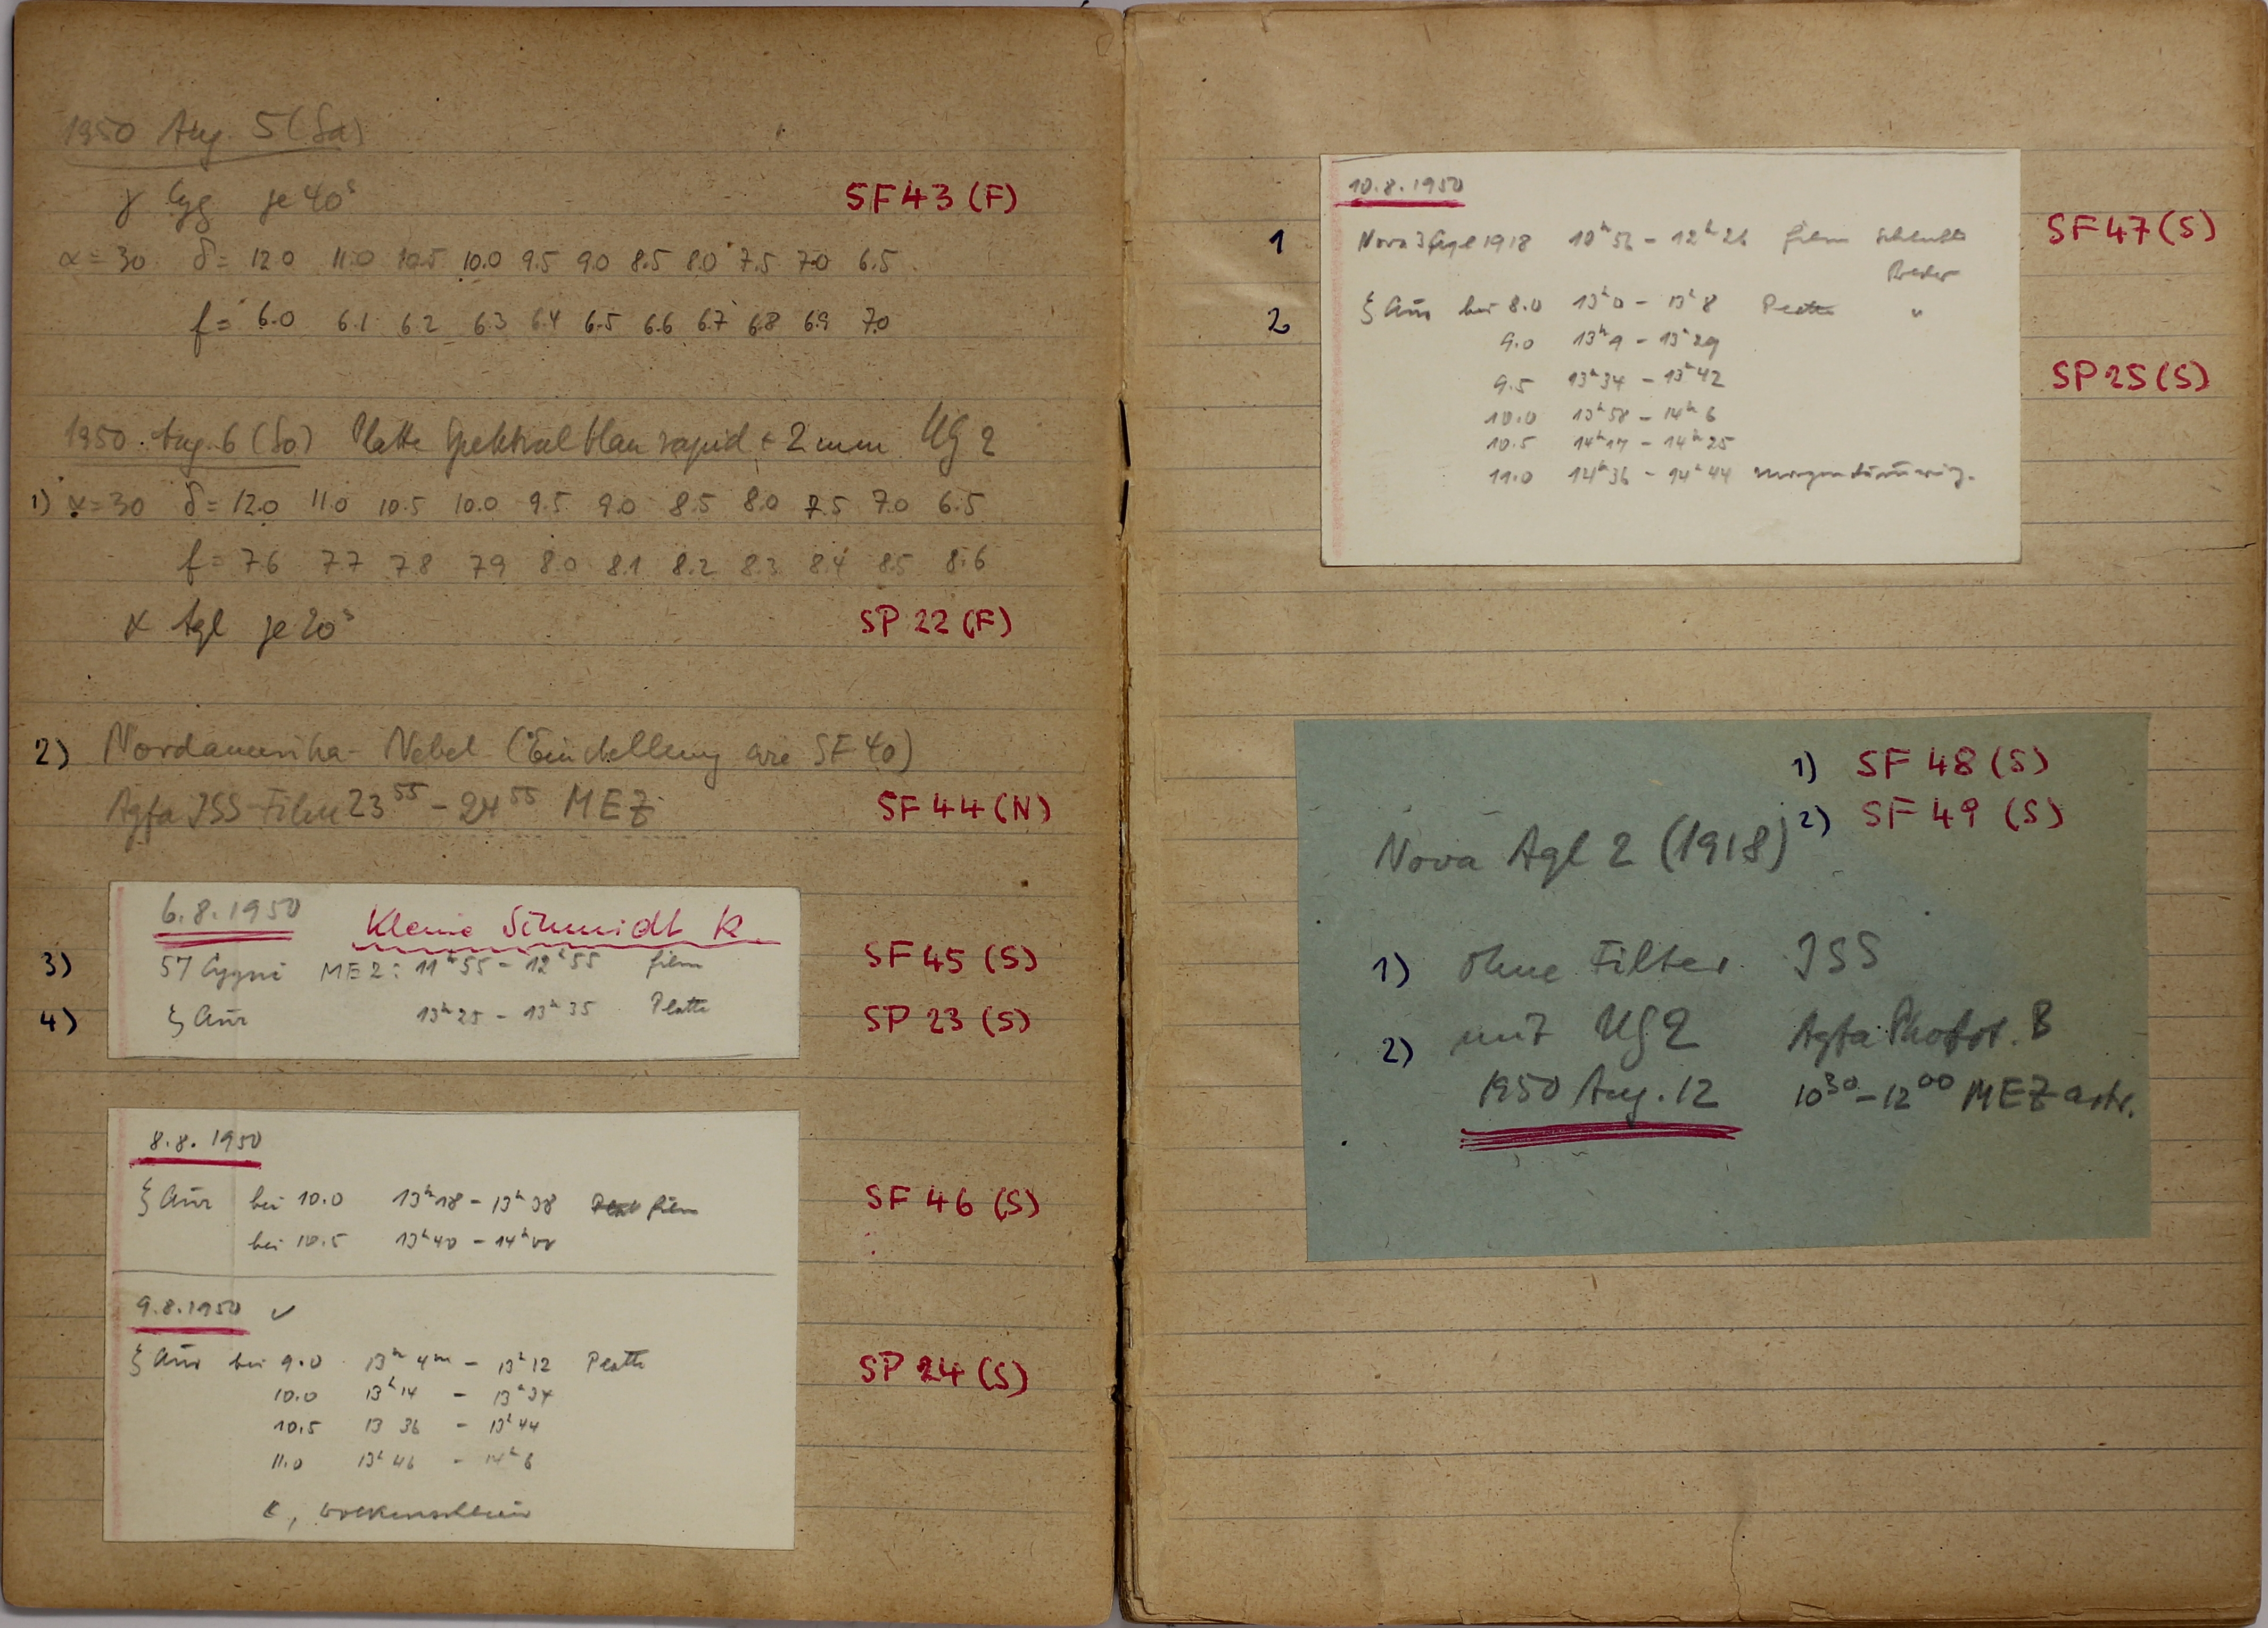 1950 Aug. 5 (Sa)
γ Cyg je 40ˢ SF 43 (F)
α = 30 δ = 12.0 11.0 10.5 10.0 9.5 9.0 8.5 8.0 7.5 7.0 6.5
f = 6.0 6.1 6.2 6.3 6.4 6.5 6.6 6.7 6.8 6.9 7.0
1950 Aug. 6 (So) Platte Spektral blau rapid + 2 mm UG 2
1) α = 30 δ = 12.0 11.0 10.5 10.0 9.5 9.0 8.5 8.0 7.5 7.0 6.5
f = 7.6 7.7 7.8 7.9 8.0 8.1 8.2 8.3 8.4 8.5 8.6
α Aql je 20ˢ SP 22 (F)
2) Nordamerika-Nebel (Einstellung wie SF 40)
Agfa ISS-Film 23⁵⁵ - 24⁵⁵ MEZ SF 44 (N)
6.8.1950 Kleine Schmidt K.
3) 57 Cygni MEZ: 11ʰ55 - 12ʰ55 Film SF 45 (S)
4) ξ Aur 13ʰ25 - 13ʰ35 Platte SP 23 (S)
8.8.1950
ξ Aur bei 10.0 13ʰ18 - 13ʰ38 Film SF 46 (S)
bei 10.5 13ʰ40 - 14ʰ00
9.8.1950 ✓
ξ Aur bei 9.0 13ʰ 4ᵐ - 13ʰ12 Platte SP 24 (S)
10.0 13ʰ14 - 13ʰ34
10.5 13 36 - 13ʰ44
11.0 13ʰ46 - 14ʰ6
, Wolkenschleier
10.8.1950
1 Nova 3 Aql 1918 10ʰ56 - 12ʰ26 Film SF 47 (S)
2 ξ Aur bei 8.0 13ʰ0 - 13ʰ8 Platte "
9.0 13ʰ9 - 13ʰ29
9.5 13ʰ34 - 13ʰ42 SP 25 (S)
10.0 13ʰ58 - 14ʰ6
10.5 14ʰ17 - 14ʰ25
11.0 14ʰ36 - 14ʰ44 Morgendämmerung.
1) SF 48 (S)
2) SF 49 (S)
Nova Aql 2 (1918)
1) ohne Filter ISS
2) mit UG2 Agfa Phot. B
1950 Aug. 12 10³⁰ - 12⁰⁰ MEZ astr.